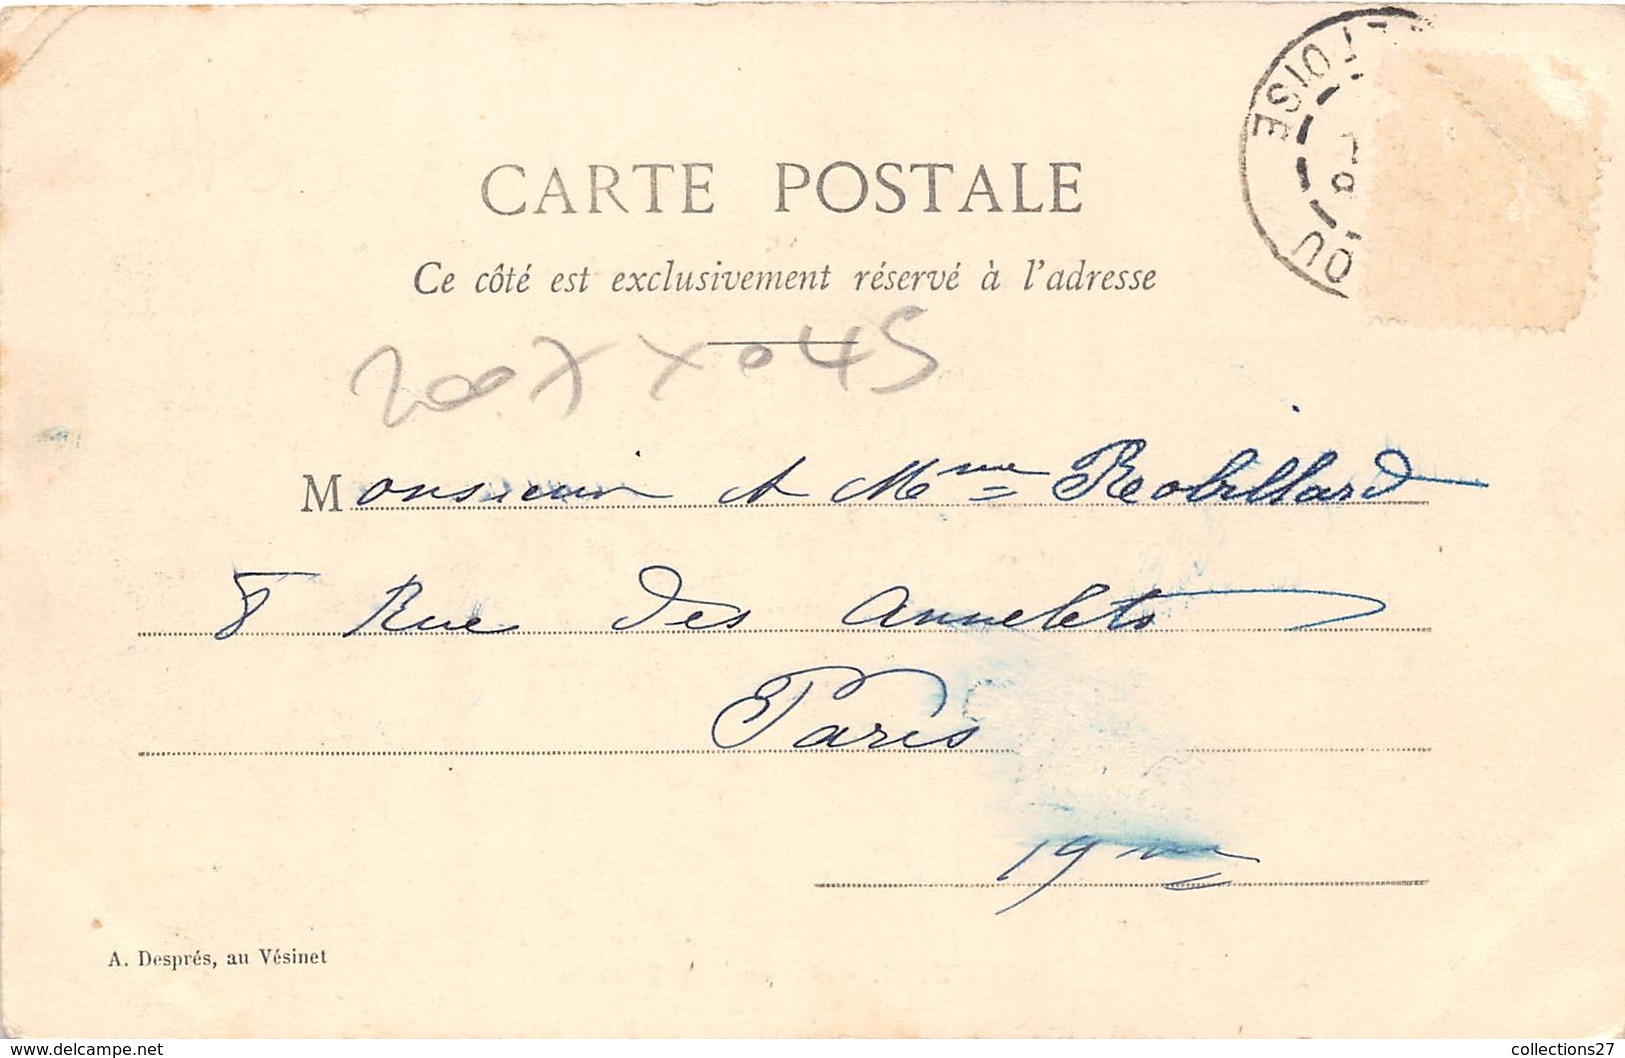 ET OISE
OU
CARTE POSTALE
Ce côté est exclusivement réservé à l'adresse
200 X X 045
Monsieur et Mme Robillard
8 Rue des Annelets
Paris
19me
A. Després, au Vésinet
www.delcampe.net
collections27